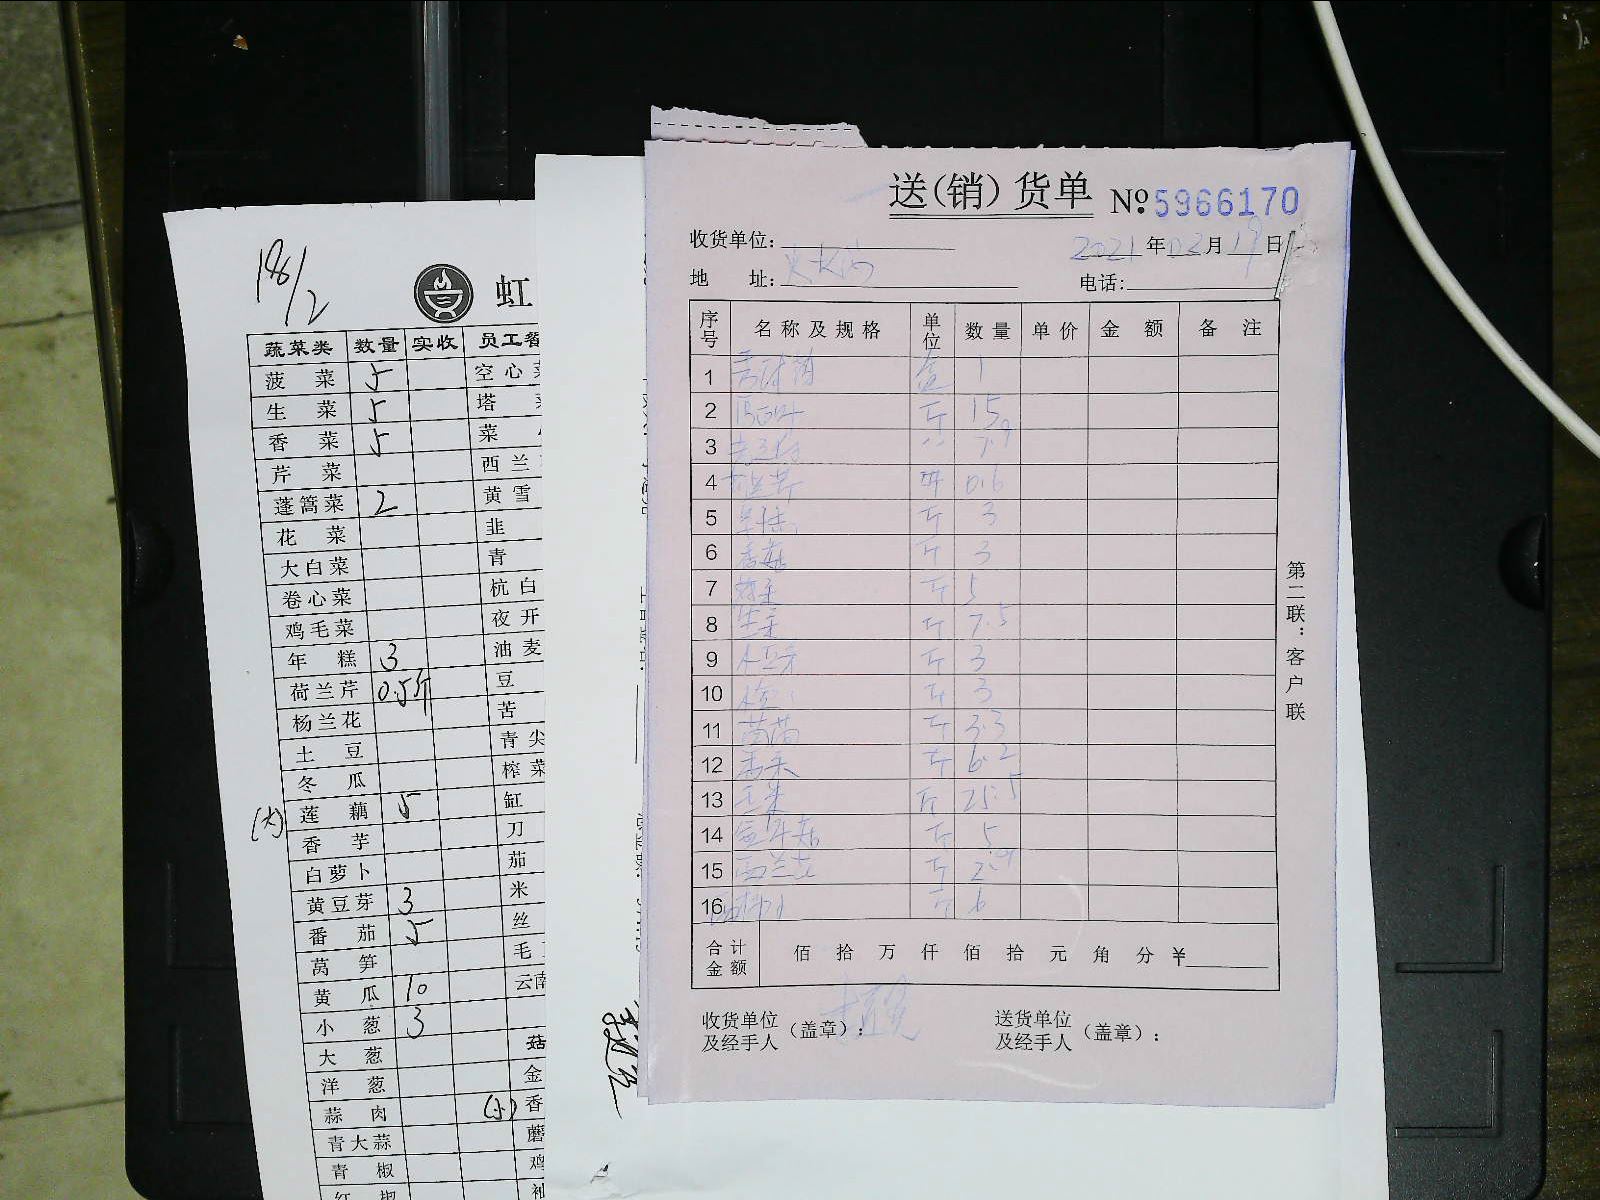 18/2
虹
蔬菜类 数量 实收 员工餐
菠菜 5 空心菜
生菜 5 塔菜
香菜 5 菜
芹菜 西兰
蓬篙菜 2 黄雪
花菜 韭
大白菜 青
卷心菜 杭白
鸡毛菜 夜开
年糕 3 油麦
荷兰芹 0.5斤 豆
杨兰花 苦
土豆 青尖
冬瓜 榨菜
(大) 莲藕 5 缸
香芋 刀
白萝卜 茄
黄豆芽 3 米
番茄 5 丝
莴笋 毛
黄瓜 10 云南
小葱 3
大葱 菇
洋葱 金
蒜肉 (小) 香
青大蒜 蘑
青椒 鸡
红椒 袖
送(销)货单 №5966170
收货单位: 2021年02月19日
地址: 电话:
序号 名称及规格 单位 数量 单价 金额 备注
1 盒 1
2 斤 15
3 7.9
4 荷兰芹 0.6
5 斤 3
6 香菇 斤 3
7 菠菜 斤 5
8 生菜 斤 7.5
9 斤 3
10 小葱 斤 3
11 茼蒿 斤 3.3
12 香菜 斤 6.2
13 玉米 斤 25.5
14 金针菇 斤 5
15 西兰花 斤
16 斤 6
合计金额 佰 拾 万 仟 佰 拾 元 角 分 ¥
收货单位及经手人(盖章): 送货单位及经手人(盖章):
第二联:客户联